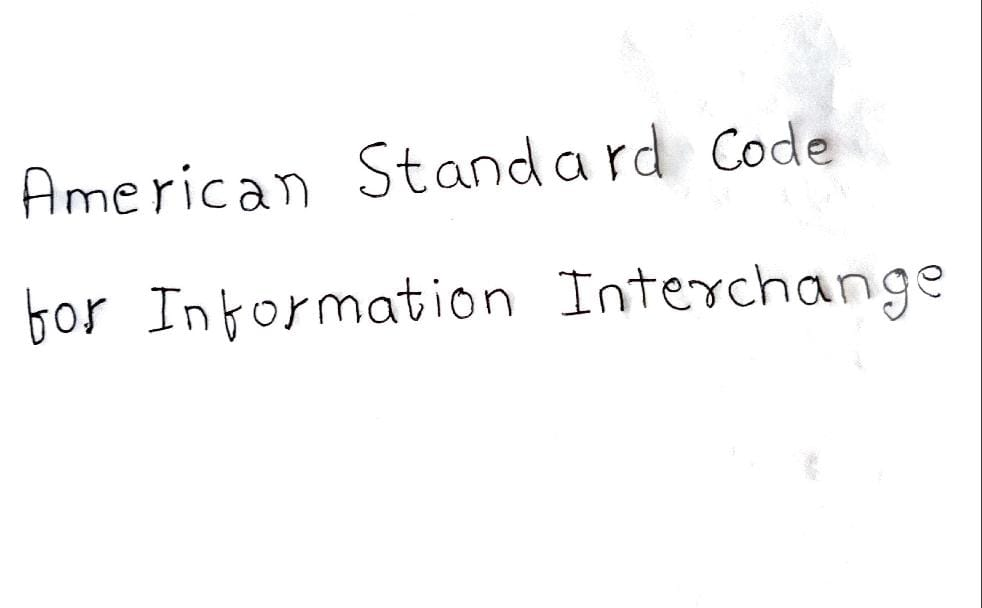 American Standard Code
for Information Interchange